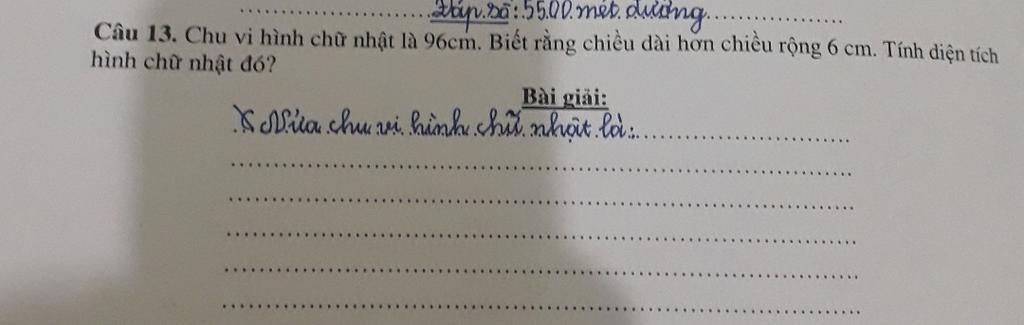 Đáp số: 5500 mét đường
Câu 13. Chu vi hình chữ nhật là 96cm. Biết rằng chiều dài hơn chiều rộng 6 cm. Tính diện tích
hình chữ nhật đó?
Bài giải:
Nửa chu vi hình chữ nhật là: